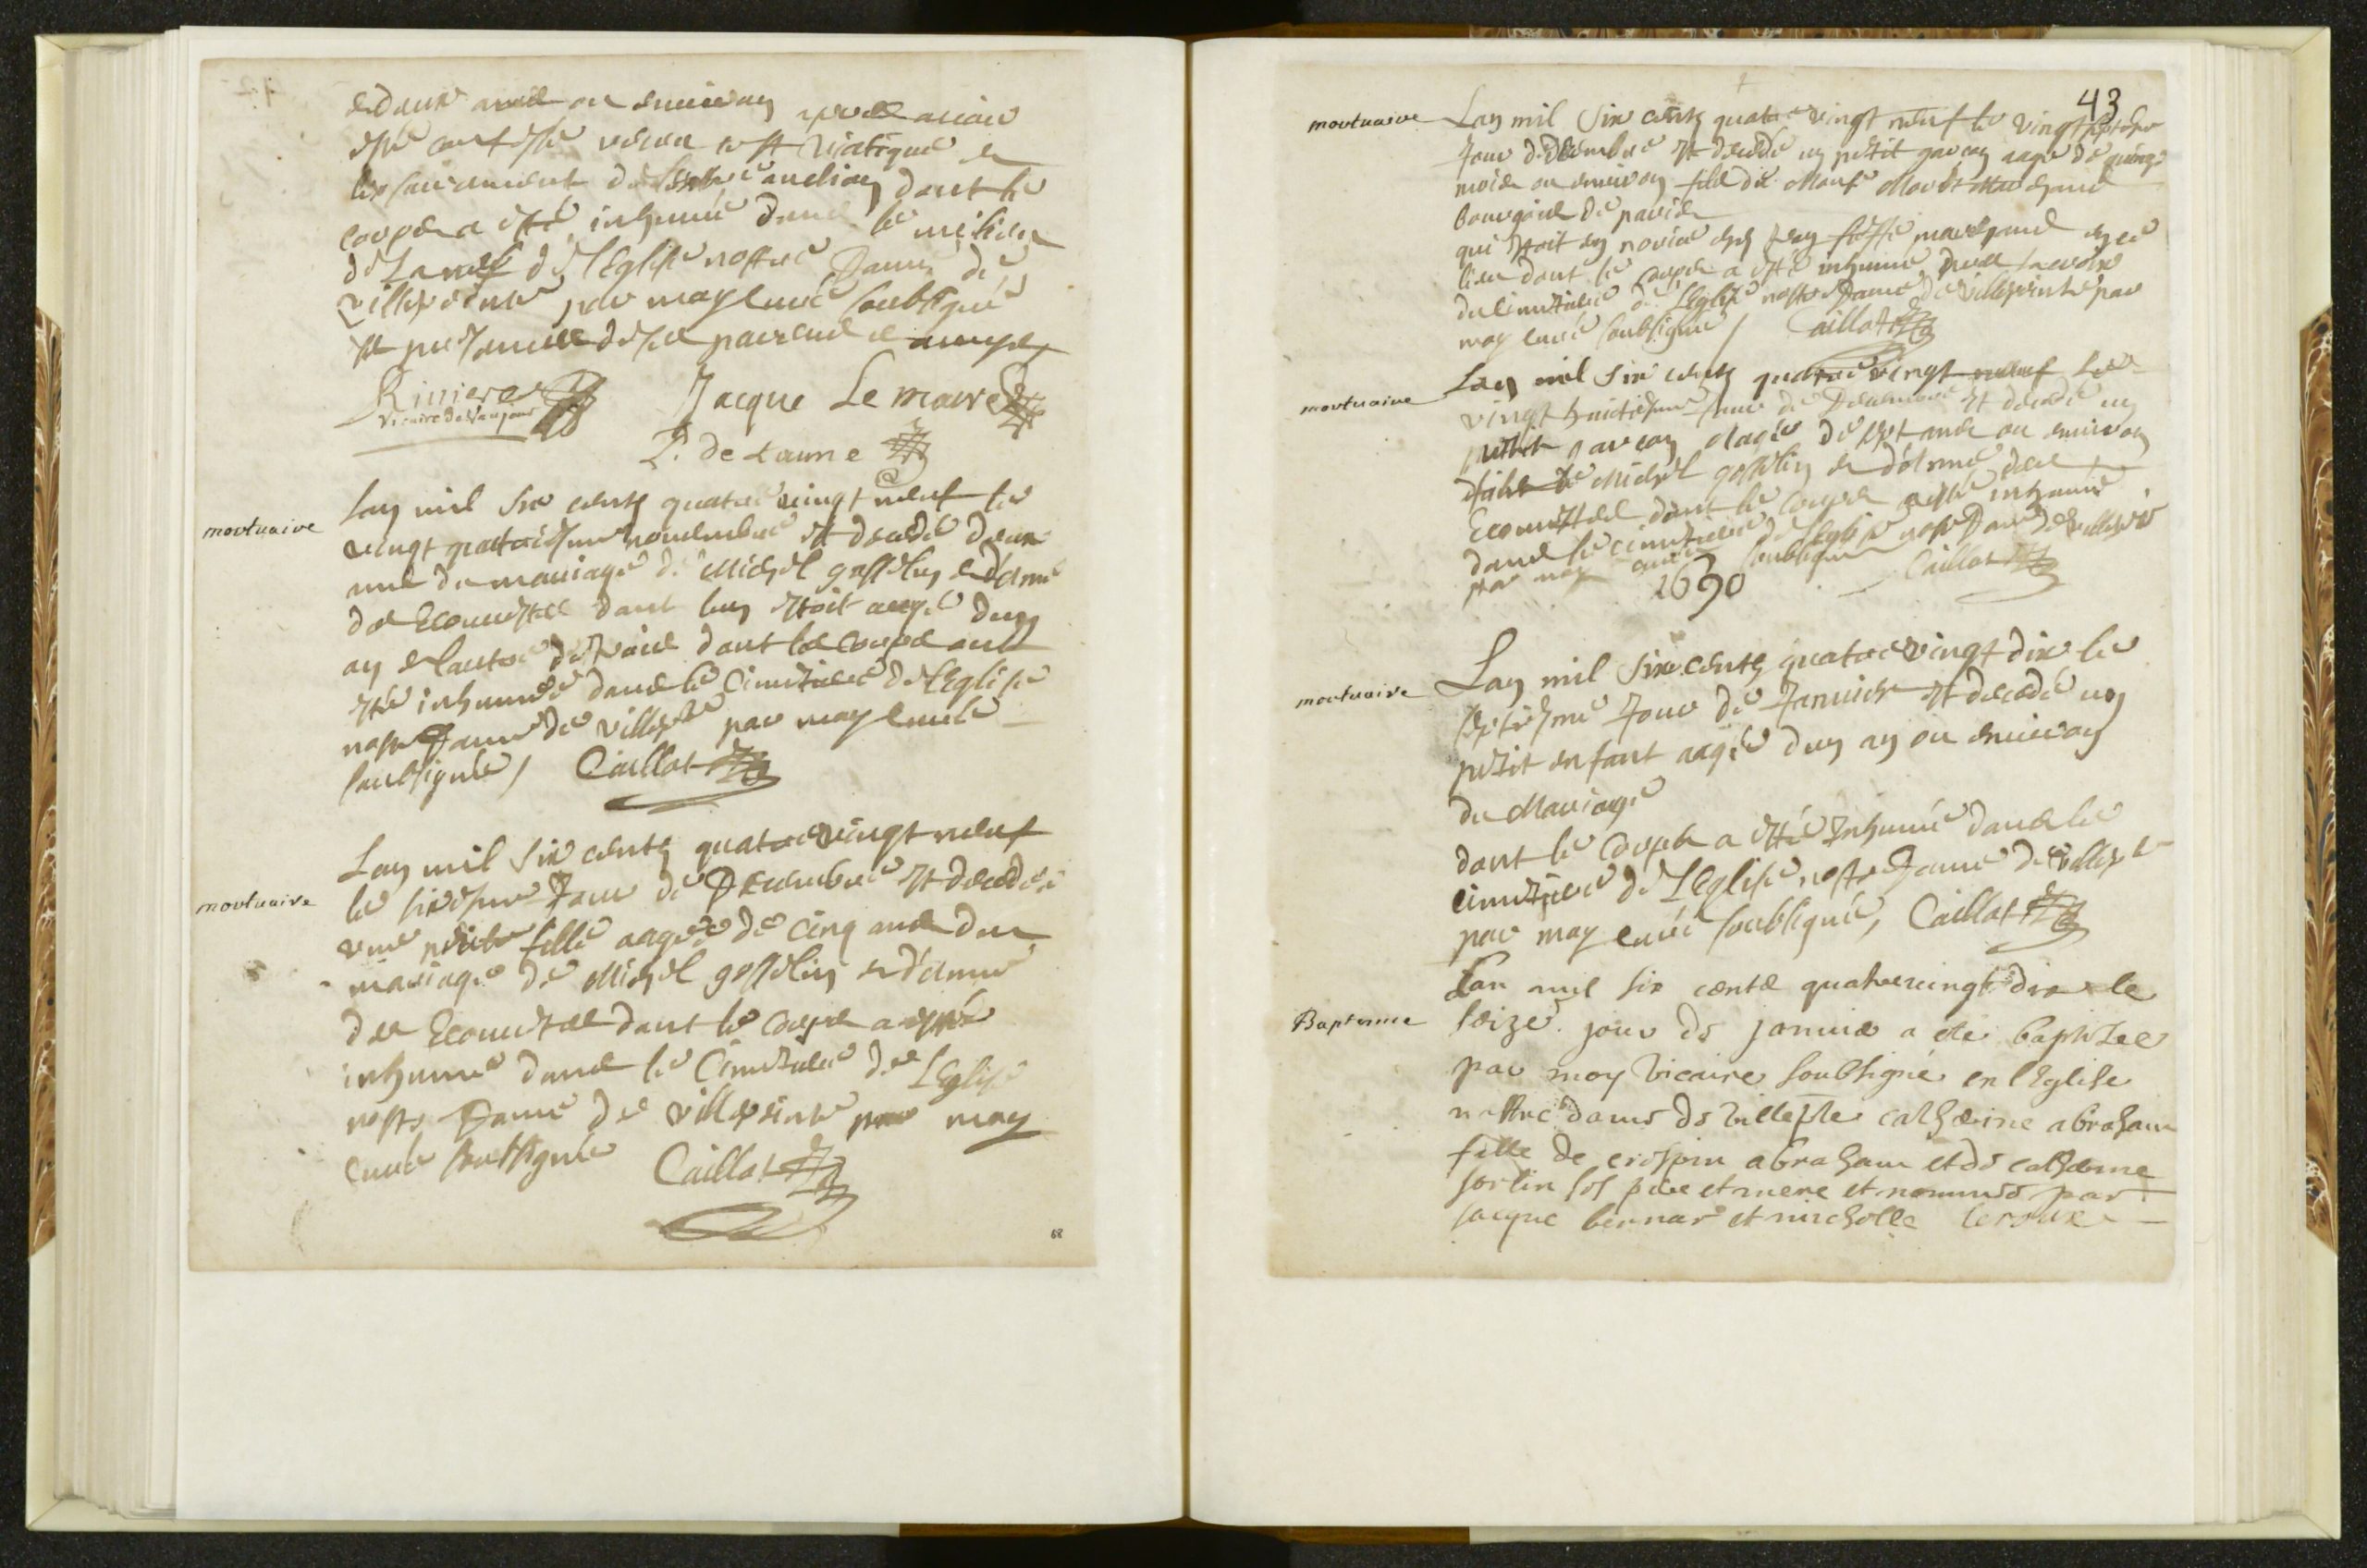 et deux ans ou environ apres avoir
esté confessé receu le st viatique et
les sacrement de lextreme onction dont le
corps a esté inhumé dans le milieu
de la nef de l'Eglise nostre Dame de
villepeinte par moy curé soubsigné
en presence de ses parens et amys
Riviere Jacque Le maire
vicaire de Vaujour
P. de Laune
mortuaire
Lan mil six cents quatre vingt neuf le
vingt quatriesme novembre est decedé deux
du mariage de Michel gosselin et d'anne
des Ecouvettes dont lun estoit aagé dun
an et lautre de trois dont les corps ont
esté inhumés dans le cimetiere de l'Eglise
nostre Dame de villepte par moy curé
soubsigné / Caillot
mortuaire
Lan mil six cents quatre vingt neuf
le sixiesme Jour de Decembre est decedée
une petite fille aagée de cinq ans du
mariage de Michel gosselin et d'anne
des Ecouvettes dont le corps a esté
inhumé dans le Cimetiere de L'Eglise
nostre Dame de villepeinte par moy
curé soubsigné Caillot
68
43
mortuaire
Lan mil six cents quatre vingt neuf le vingt septiesme
Jour de decembre est decedé un petit garcon aagé de quinze
mois ou environ fils de
bourgeois de paris
qui estoit en norice chez Jean marchand en ce
lieu dont le corps a esté inhumé
du cimetiere de L'Eglise nostre Dame de villepeinte par
moy curé soubsigné / Caillot
mortuaire
Lan mil six cents quatre vingt neuf le
vingt huictiesme Jour de Decembre est decedé un
petit garcon aagé de sept ans ou environ
de Michel gosselin et d'anne des
Ecouvettes dont le corps a esté inhumé
dans le cimetiere de l'Eglise nostre Dame de villepte
par moy curé soubsigné Caillot
1690
mortuaire
Lan mil six cents quatre vingt dix le
septiesme Jour de Janvier est decedé un
petit enfant aagé dun an ou environ
du Mariage
dont le corps a esté Inhumé dans le
cimetiere de L'Eglise nostre Dame de villepte
par moy curé soubsigné, Caillot
Baptesme
Lan mil six cents quatrevingt dix le
seize jour de janvier a été baptizee
par moy vicaire soubsigné en l'Eglise
nottre dame de villepte catherine abraham
fille de crespin abraham et de catherine
fortin ses pere et mere et nommée par
jacque bernar et nicholle leroux